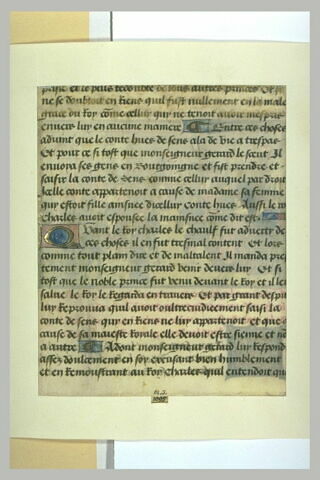 prise et le plus redoubte de tous autres princes Et si
ne se doubtoit en Riens quil fust nullement en la male
grace du Roy côme cellui qui ne tenoit auoir mespris
enuers luy en aucune maniere Entre ces choses
aduint que le conte hues de sens ala de vie a trespas
Et pour ce si tost que monseigneur gerard le sceut Il
enuoia ses gens en bourgongne et fist prendre et
saisir la conte de Sens comme cellui auquel par droit
Icelle conte appartenoit a cause de madame sa femme
qui estoit fille ainsnee dicellui Conte hues Aussi le roy
Charles auoit espousee la mainsnee côme dit est
Quant le Roy charles le chauf fut aduerty de
ces choses il en fut tresmal content Et lors
comme tout plain dire et de maltalent Il manda pres
tement monseigneur gerard venir deuers luy Et si
tost que le noble prince fut venu deuant le Roy et il leu
salue le Roy le Regarda en trauers Et par grant despit
luy Reprouua quil auoit oultrecuidieement saisi la
conte de sens qui en Riens ne luy appartenoit et que a
cause de sa maieste Royale elle deuoit estre sienne et no
a autre Adont monseigneur gerard luy Respond
assez doulcement en soy excusant bien humblement
et en Remoustrant au Roy Charles quil entendoit que